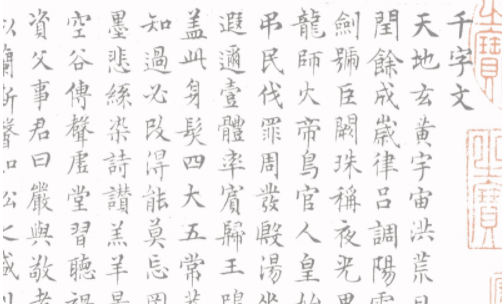 千字文
天地玄黃宇宙洪荒
閏餘成歲律呂調陽
劍號巨闕珠稱夜光
龍師火帝鳥官人皇始
弔民伐罪周發殷湯坐
遐邇壹體率賓歸王鳴
蓋此身髮四大五常恭
知過必改得能莫忘罔
墨悲絲染詩讚羔羊景
空谷傳聲虛堂習聽禍
資父事君曰嚴與敬孝
似蘭斯馨如松之盛
之寶
之寶